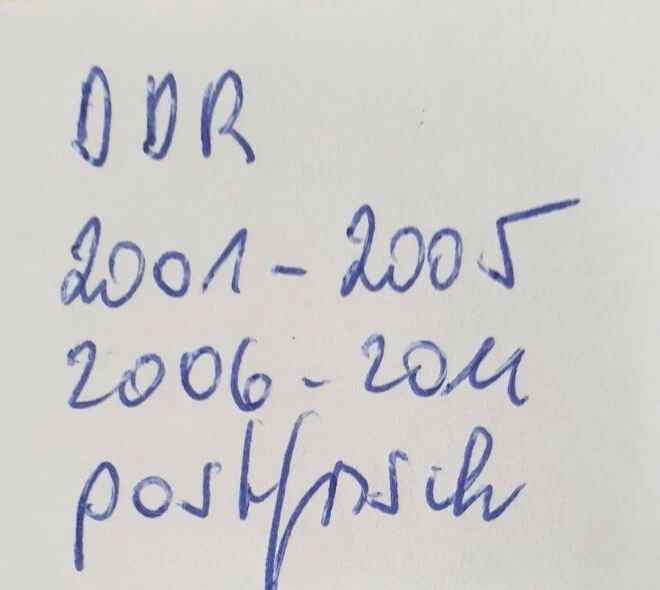 DDR
2001 - 2005
2006 - 2011
postfrisch